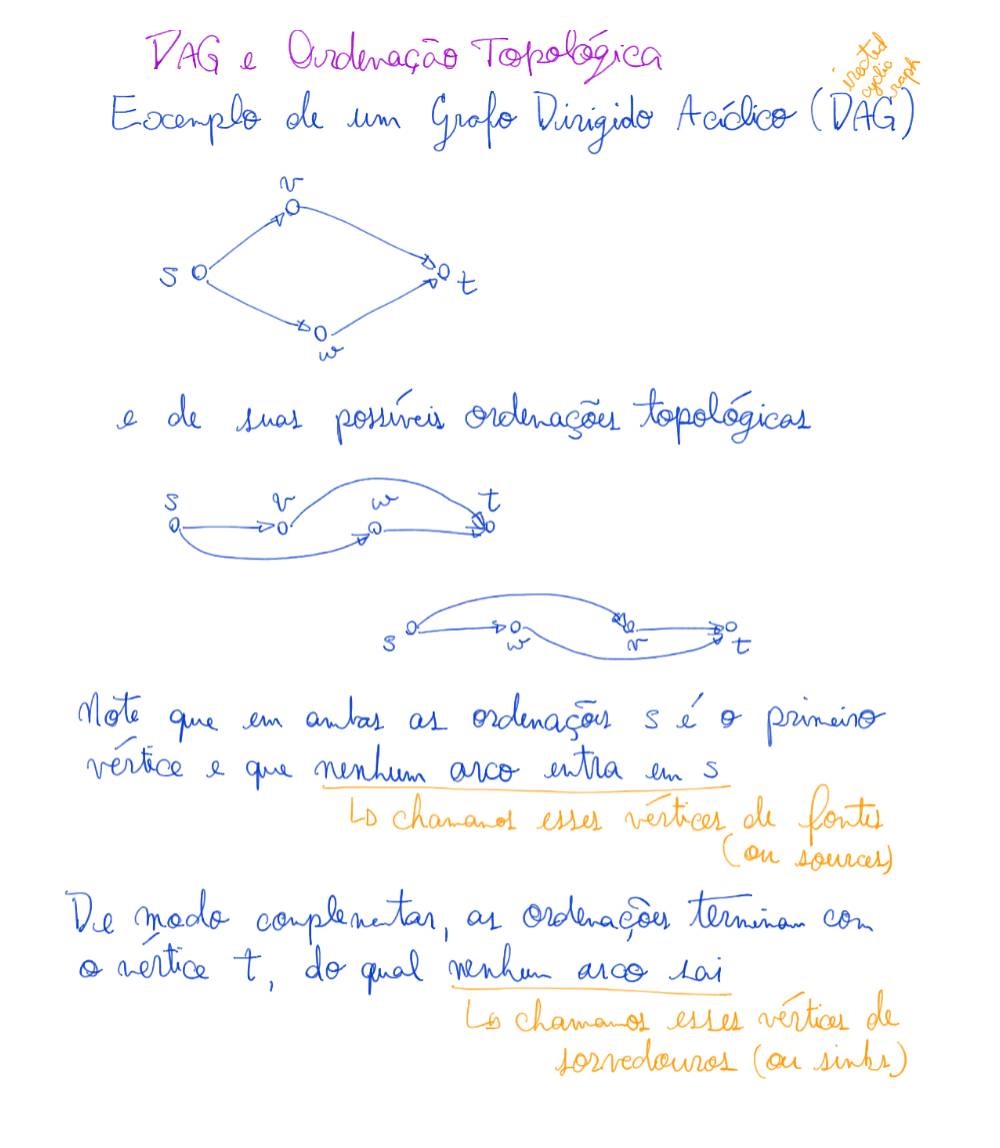 DAG e Ordenação Topológica
irected
cyclic
raph
Exemplo de um Grafo Dirigido Acíclico (DAG)
v
s
t
w
e de suas possíveis ordenações topológicas
s v w t
s w v t
Note que em ambas as ordenações s é o primeiro
vértice e que nenhum arco entra em s
↳ chamamos esses vértices de fontes
(ou sources)
De modo complementar, as ordenações terminam com
o vértice t, do qual nenhum arco sai
↳ chamamos esses vértices de
sorvedouros (ou sinks)